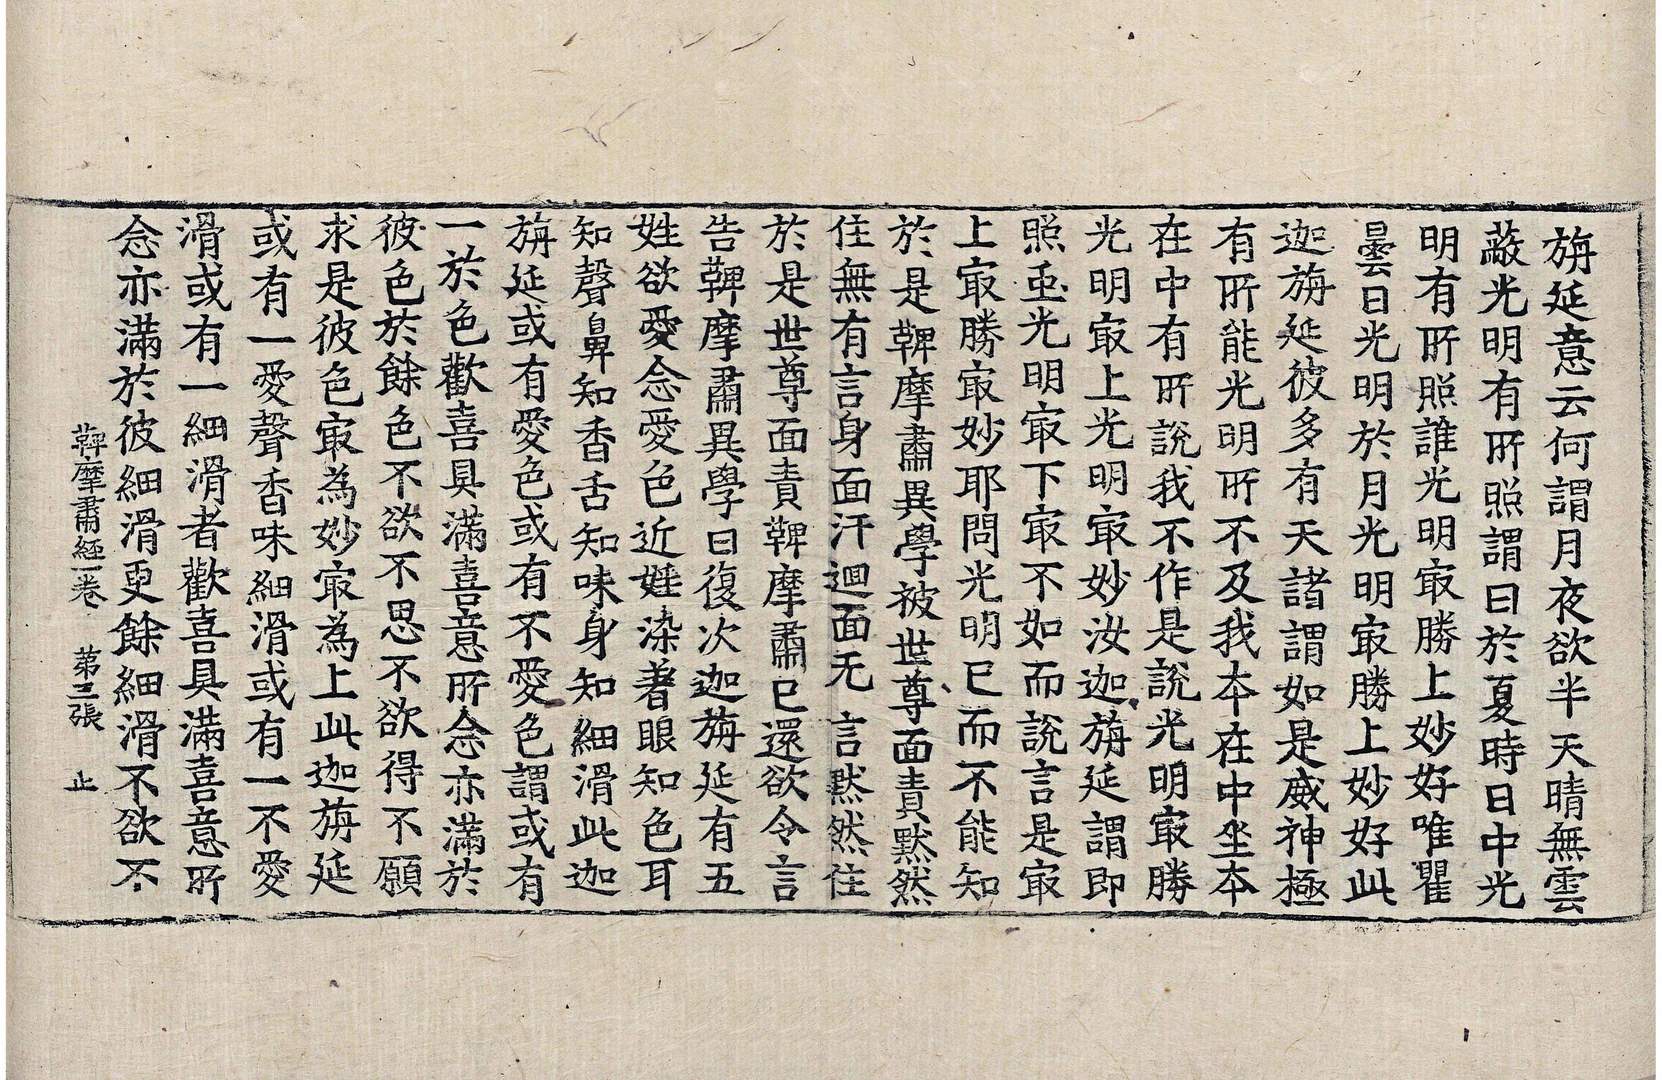 旃延意云何謂月夜欲半天晴無雲
蔽光明有所照謂日於夏時日中光
明有所照誰光明㝡勝上妙好唯瞿
曇日光明於月光明㝡勝上妙好此
迦旃延彼多有天諸謂如是威神極
有所能光明所不及我本在中坐本
在中有所說我不作是說光明㝡勝
光明㝡上光明㝡妙汝迦旃延謂即
照䖝光明㝡下㝡不如而說言是㝡
上㝡勝㝡妙耶問光明已而不能知
於是鞞摩肅異學被世尊面責默然
住無有言身面汗迴面无言默然住
於是世尊面責鞞摩肅已還欲令言
告鞞摩肅異學曰復次迦旃延有五
姓欲愛念愛色近婬染著眼知色耳
知聲鼻知香舌知味身知細滑此迦
旃延或有愛色或有不愛色謂或有
一於色歡喜具滿喜意所念亦滿於
彼色於餘色不欲不思不欲得不願
求是彼色㝡為妙㝡為上此迦旃延
或有一愛聲香味細滑或有一不愛
滑或有一細滑者歡喜具滿喜意所
念亦滿於彼細滑更餘細滑不欲不
鞞摩肅經一卷 第三張 止